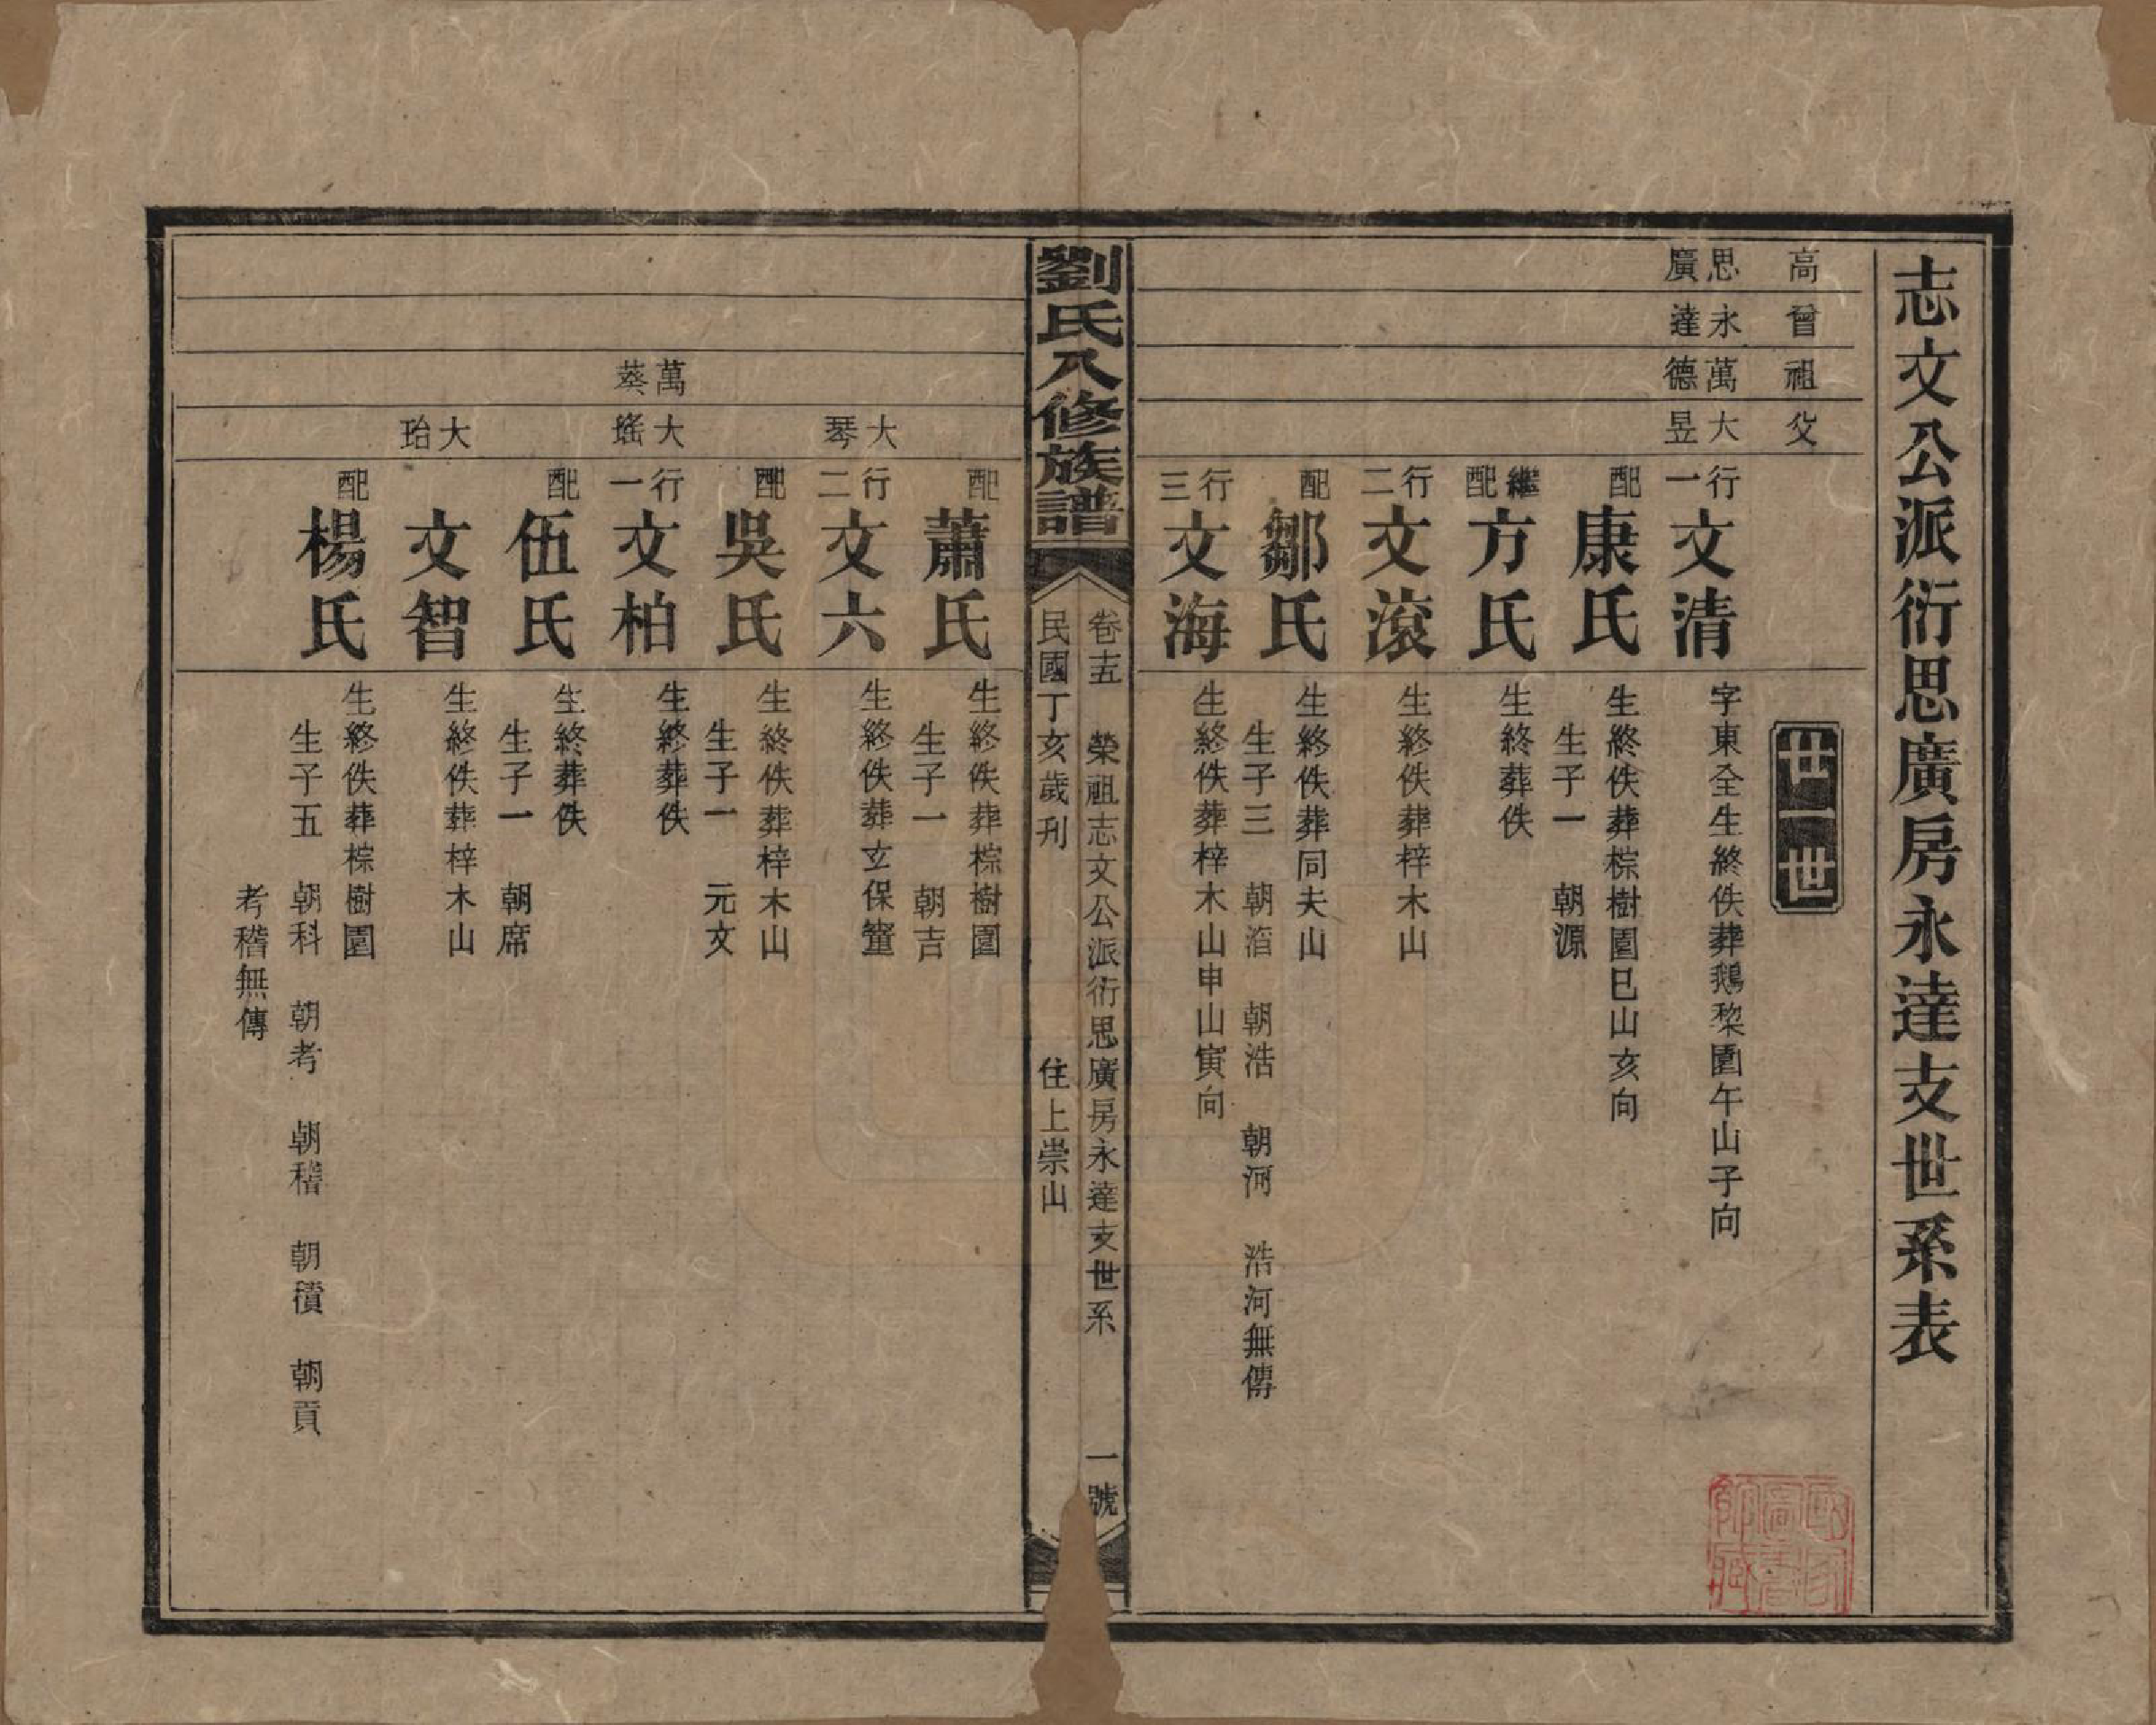 志文公派衍思廣房永達支世系表
高
曾
祖
父
廿一世
思廣
永達
萬德
大昱
行一
文清
字東全生終佚葬鵝棃園午山子向
配
康氏
生終佚葬棕樹園巳山亥向
生子一 朝源
繼配
方氏
生終葬佚
行二
文滾
生終佚葬梓木山
配
鄒氏
生終佚葬同夫山
生子三 朝滔 朝浩 朝河 浩河無傳
行三
文海
生終佚葬梓木山申山寅向
劉氏八修族譜
卷十五 榮祖志文公派衍思廣房永達支世系 一號
民國丁亥歲刋 住上崇山
配
蕭氏
生終佚葬棕樹園
生子一 朝吉
大琴
行二
文六
生終佚葬玄保
配
吳氏
生終佚葬梓木山
生子一 元文
萬葵
大瑤
行一
文柏
生終葬佚
配
伍氏
生終葬佚
生子一 朝席
大珆
文智
生終佚葬梓木山
配
楊氏
生終佚葬棕樹園
生子五 朝科 朝考 朝稽 朝積 朝貢
考稽無傳
國家圖書館藏